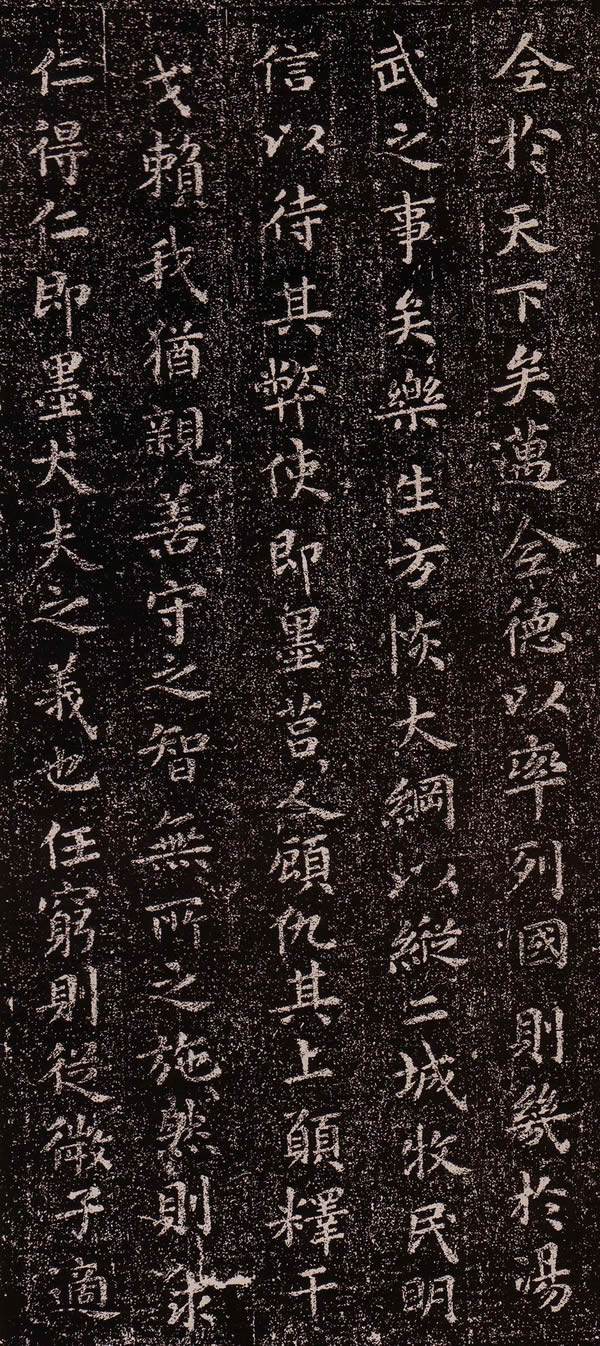 全於天下矣邁全德以率列國則幾於湯
武之事矣樂生方恢大綱以縱二城牧民明
信以待其弊使即墨莒人顧仇其上願釋干
戈賴我猶親善守之智無所之施然則求
仁得仁即墨大夫之義也任窮則從微子適